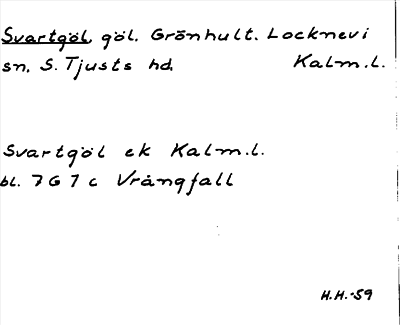 Svartgöl, göl. Grönhult. Locknevi
sn. S. Tjusts hd. Kalm.l.
Svartgöl ek Kalm.l.
bl. 7G7c Vrångfall
H.H.-59